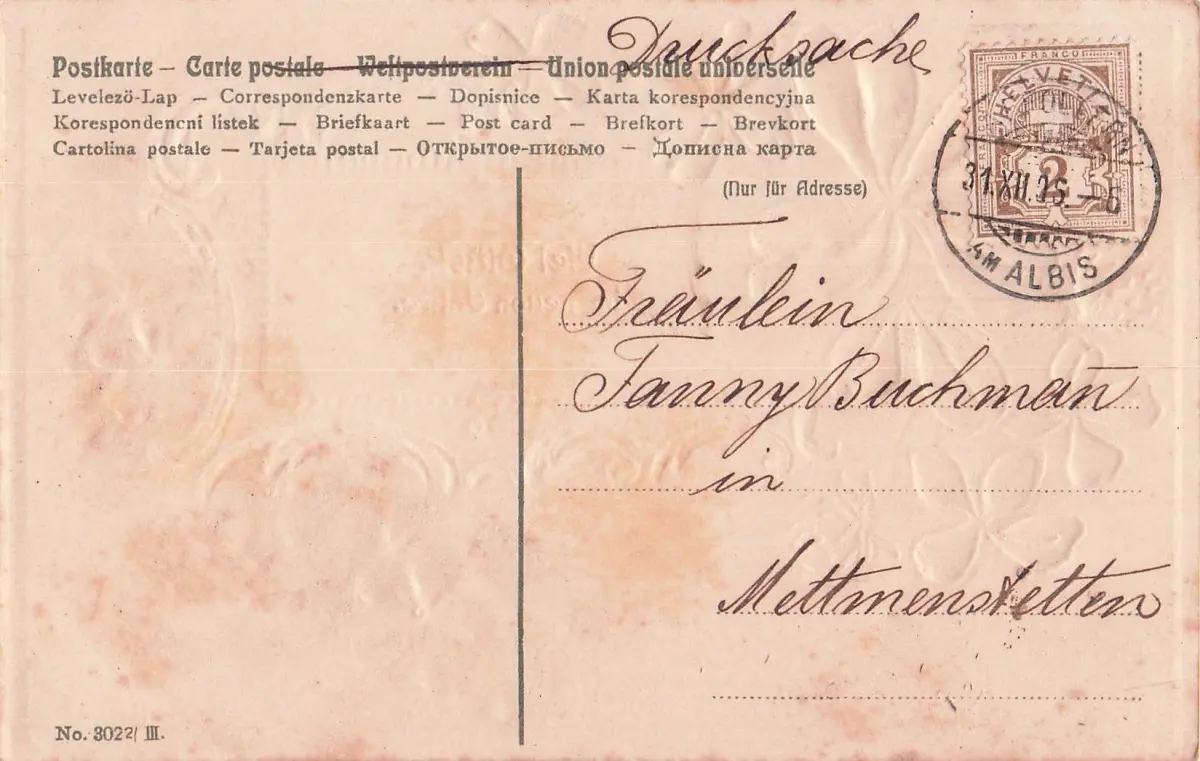 Drucksache
Postkarte – Carte postale – Weltpostverein – Union postale universelle
Levelező-Lap – Correspondenzkarte – Dopisnice – Karta korespondencyjna
Korespondencni listek – Briefkaart – Post card – Brefkort – Brevkort
Cartolina postale – Tarjeta postal – Открытое-письмо – Дописна карта
(Nur für Adresse)
FRANCO
HELVETIA
2
31.XII. –6
AM ALBIS
Fräulein
Fanny Buchman̄
in
Mettmenstetten
No. 3022/ III.